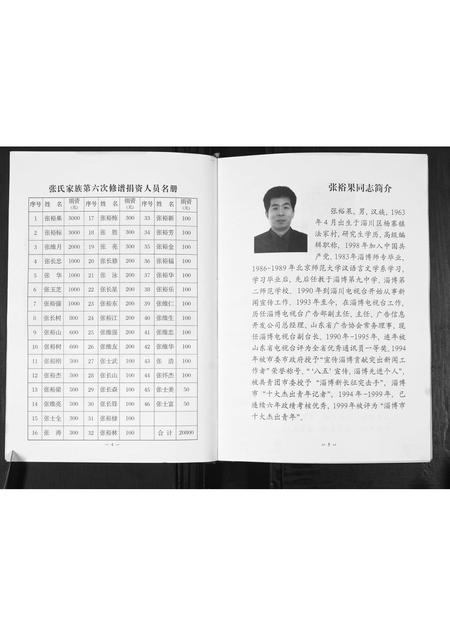 张氏家族第六次修谱捐资人员名册
序号 姓 名 捐资(元) 序号 姓 名 捐资(元) 序号 姓 名 捐资(元)
1 张裕果 3000 17 张裕栋 300 33 张裕新 100
2 张裕标 3000 18 张 胜 300 34 张裕芳 100
3 张维月 2000 19 张 亮 300 35 张裕金 100
4 张长忠 1000 20 张长修 200 36 张裕福 100
5 张 华 1000 21 张 泳 200 37 张裕华 100
6 张玉芝 1000 22 张长星 200 38 张裕乐 100
7 张裕强 1000 23 张裕东 200 39 张维仁 100
8 张长树 800 24 张裕江 200 40 张维生 100
9 张裕山 600 25 张维强 200 41 张维忠 100
10 张裕树 600 26 张维友 200 42 张维华 100
11 张裕刚 500 27 张士武 100 43 张 浩 100
12 张裕杰 500 28 张长山 100 44 张怀杰 100
13 张裕梁 500 29 张长森 100 45 张士美 50
14 张维亮 500 30 张长锋 100 46 张士富 50
15 张士全 500 31 张裕禄 100
16 张 涛 500 32 张裕林 100 合 计 20800
— 4 —
张裕果同志简介
张裕果，男，汉族，1963
年4月出生于淄川区杨寨镇
法家村，研究生学历，高级编
辑职称，1998年加入中国共
产党。1983年淄博师专毕业，
1986-1989年北京师范大学汉语言文学系学习，
学习毕业后，先后任教于淄博第九中学，淄博第
二师范学校。1990年到淄川电视台开始从事新
闻宣传工作，1993年至今，在淄博电视台工作，
历任淄博电视台广告部副主任、主任、广告信息
开发公司总经理，山东省广告协会常务理事，现
任淄博电视台副台长。1990年-1995年，连年被
山东省电视台评为全省优秀通讯员一等奖，1994
年被市委市政府授予“宣传淄博贡献突出新闻工
作者”荣誉称号、“‘八五’宣传，淄博先进个人”，
被共青团市委授予“淄博新长征突击手”，淄博
市“十大杰出青年记者”。1994年-1999年，已
连续六年政绩考核优秀，1999年被评为“淄博市
十大杰出青年”。
— 5 —